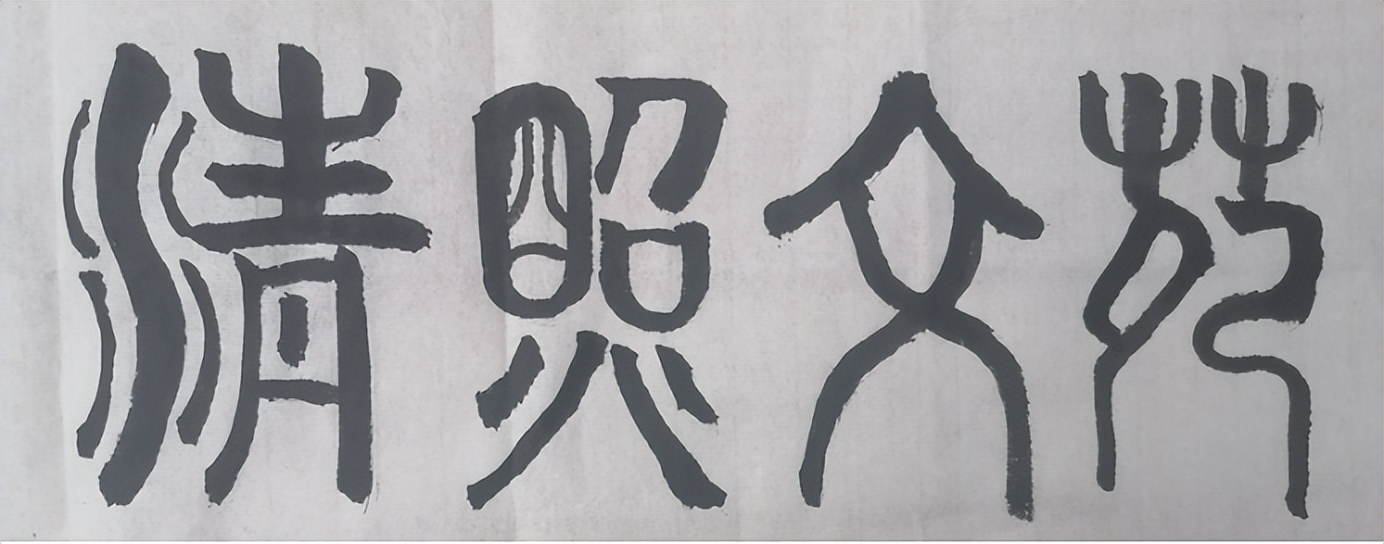 清照文苑